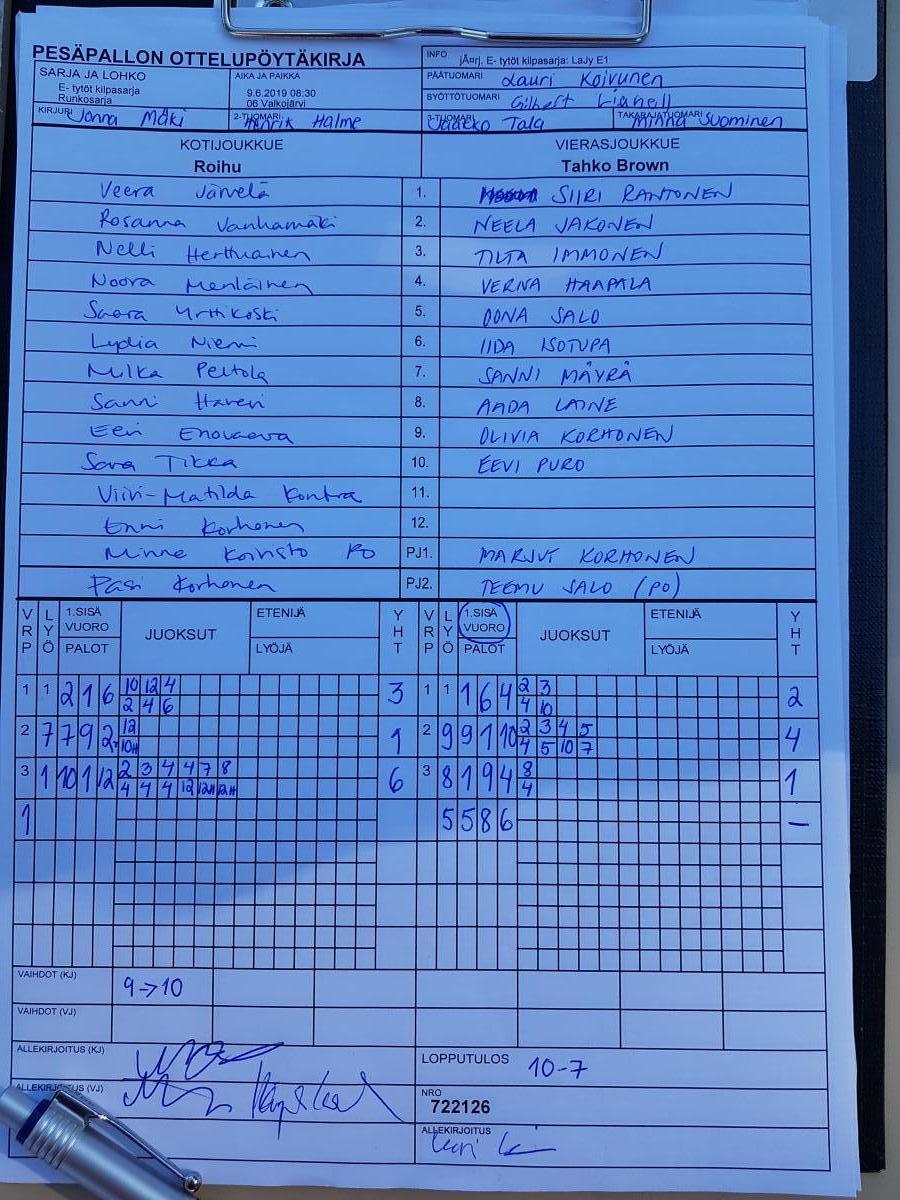 PESÄPALLON OTTELUPÖYTÄKIRJA
INFO jÄ¤rj. E- tytöt kilpasarja: LaJy E1
SARJA JA LOHKO
E- tytöt kilpasarja
Runkosarja
AIKA JA PAIKKA
9.6.2019 08:30
06 Valkojärvi
PÄÄTUOMARI Lauri Koivunen
SYÖTTÖTUOMARI Gilbert
KIRJURI Jonna Mäki
2-TUOMARI Henrik Halme
3-TUOMARI Jaakko Tala
TAKARAJATUOMARI Minna Suominen
KOTIJOUKKUE
Roihu
VIERASJOUKKUE
Tahko Brown
Veera Järvelä 1. SIIRI RANTONEN
Rosanna Vanhamäki 2. NEELA JAKONEN
Nelli Herttuainen 3. TILTA IMMONEN
Noora 4. VERNA HAAPALA
Saara Yrttikoski 5. OONA SALO
Lydia Niemi 6. IIDA ISOTUPA
Milka Peltola 7. SANNI MÄYRÄ
Sanni Haveri 8. AADA LAINE
Eevi 9. OLIVIA KORHONEN
Sara Tikka 10. EEVI PURO
Viivi-Matilda Kontra 11.
Enni Korhonen 12.
Minne Koivisto PO PJ1. MARJUT KORHONEN
Pasi Korhonen PJ2. TEEMU SALO (PO)
VRP LYÖ 1.SISÄ VUORO PALOT JUOKSUT ETENIJÄ LYÖJÄ YHT VRP LYÖ 1.SISÄ VUORO PALOT JUOKSUT ETENIJÄ LYÖJÄ YHT
1 1 2 1 6 10 12 4 3 1 1 1 6 4 2 3 2
2 4 6 4 10
2 7 7 9 2 12 1 2 9 9 1 10 2 3 4 5 4
10H 4 5 10 7
3 1 10 1 12 2 3 4 4 7 8 6 3 8 1 9 4 8 1
4 4 4 12 12H 12H 4
1 5 5 8 6 —
VAIHDOT (KJ) 9→10
VAIHDOT (VJ)
ALLEKIRJOITUS (KJ)
LOPPUTULOS 10-7
ALLEKIRJOITUS (VJ)
NRO
722126
ALLEKIRJOITUS